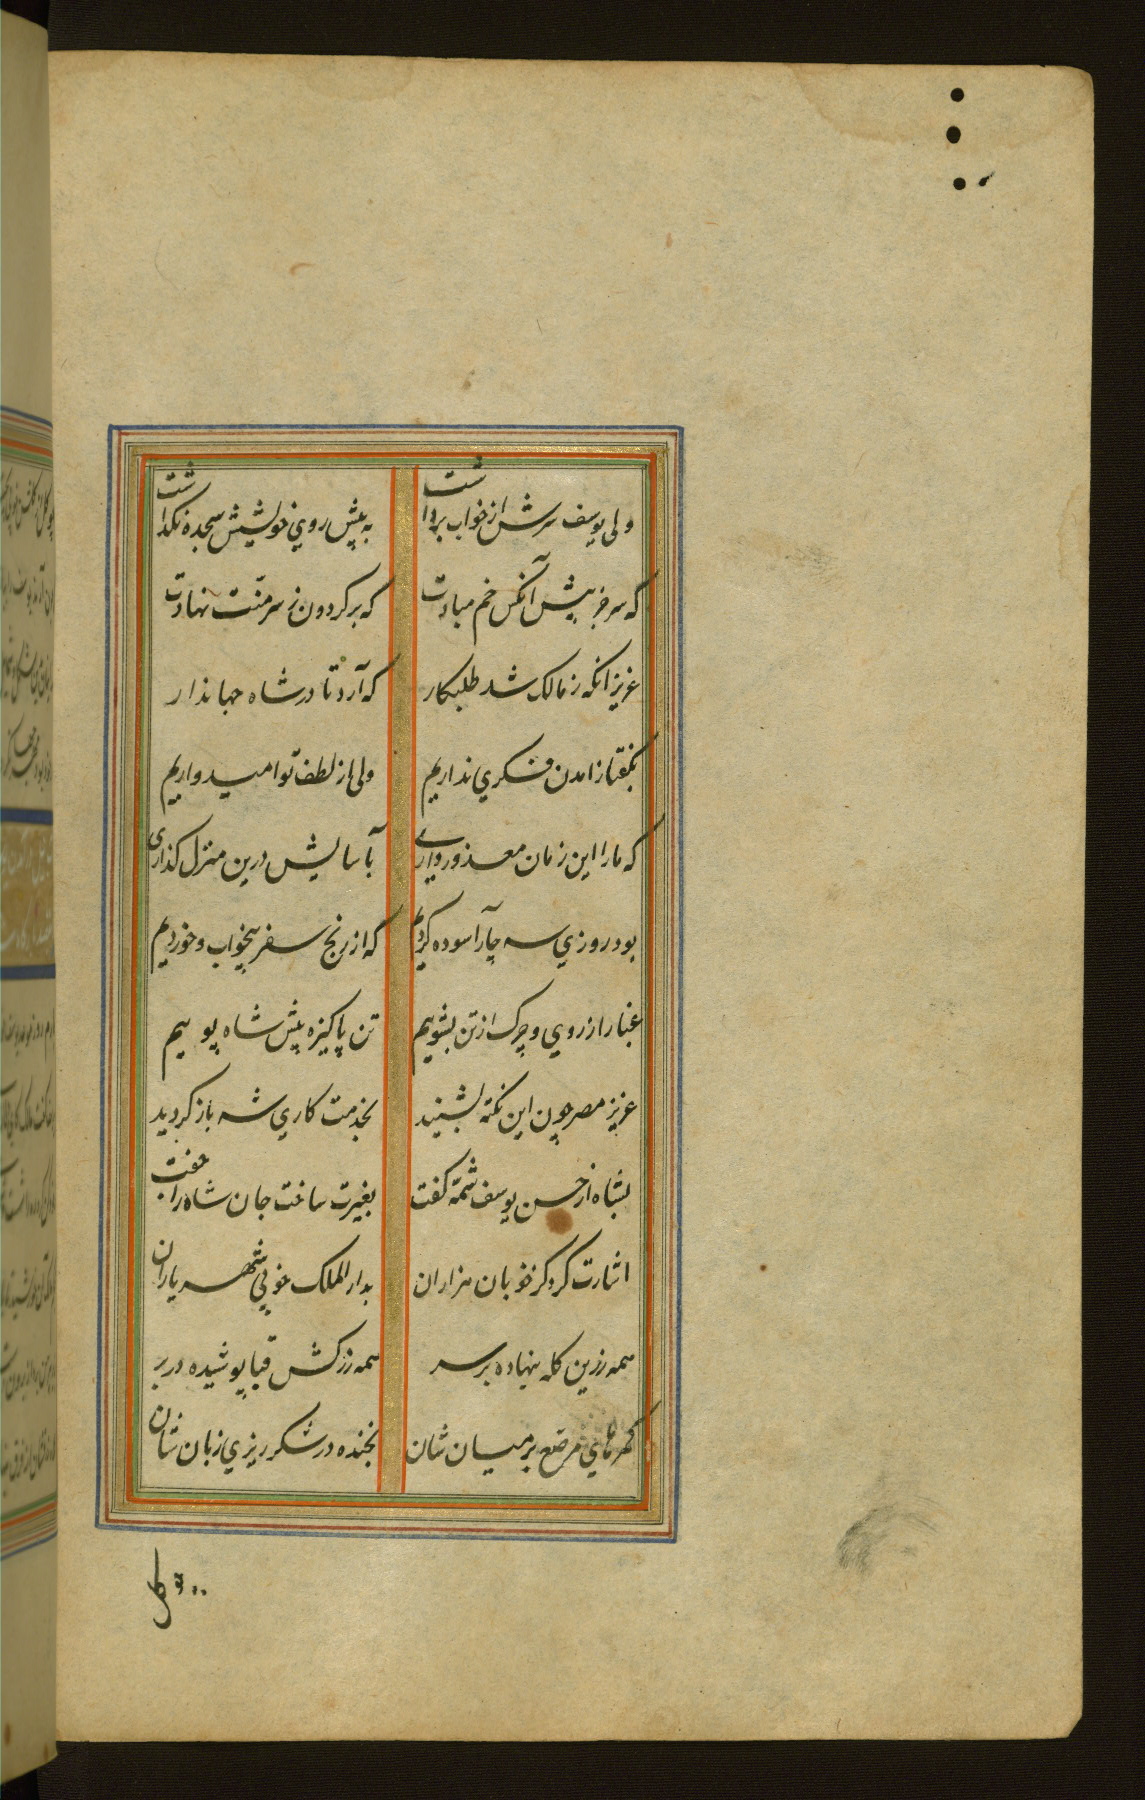 ولی یوسف سرش از خواب برداشت به پیش روی خویشش سجده نگذاشت
که سر جز پیش آنکس خم مبادت که بر گردون ز سر منّت نهادت
عزیز انکه ز مالک شد طلبکار که آرد تا در شاه جهاندار
بگفتا ز امدن فکری نداریم ولی از لطف تو امیدواریم
که ما را این زمان معذور داری بآسایش درین منزل گذاری
بود روزی سه چار آسوده گردیم که از رنج سفر بیخواب و خوردیم
غبار از روی و چرک از تن بشوییم تن پاکیزه پیش شاه پوییم
عزیز مصر چون این نکته بشنید بخدمت کاری شه باز گردید
بشاه از حسن یوسف شمّهٔ گفت بغیرت ساخت جان شاه را جفت
اشارت کرد کز خوبان هزاران بدار الملک خوبی شهریاران
همه زرین کله بنهاده بر سر همه زرکش قبا پوشیده در بر
کمرهای مرصّع بر میان شان بخنده در شکر ریزی زبان شان